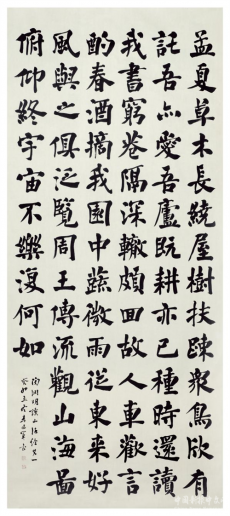 孟夏草木長繞屋樹扶疎衆鳥欣有
託吾亦愛吾廬既耕亦已種時還讀
我書窮巷隔深轍頗回故人車歡言
酌春酒摘我園中蔬微雨從東來好
風與之俱泛覽周王傳流觀山海圖
俯仰終宇宙不樂復何如
陶淵明讀山海經其一